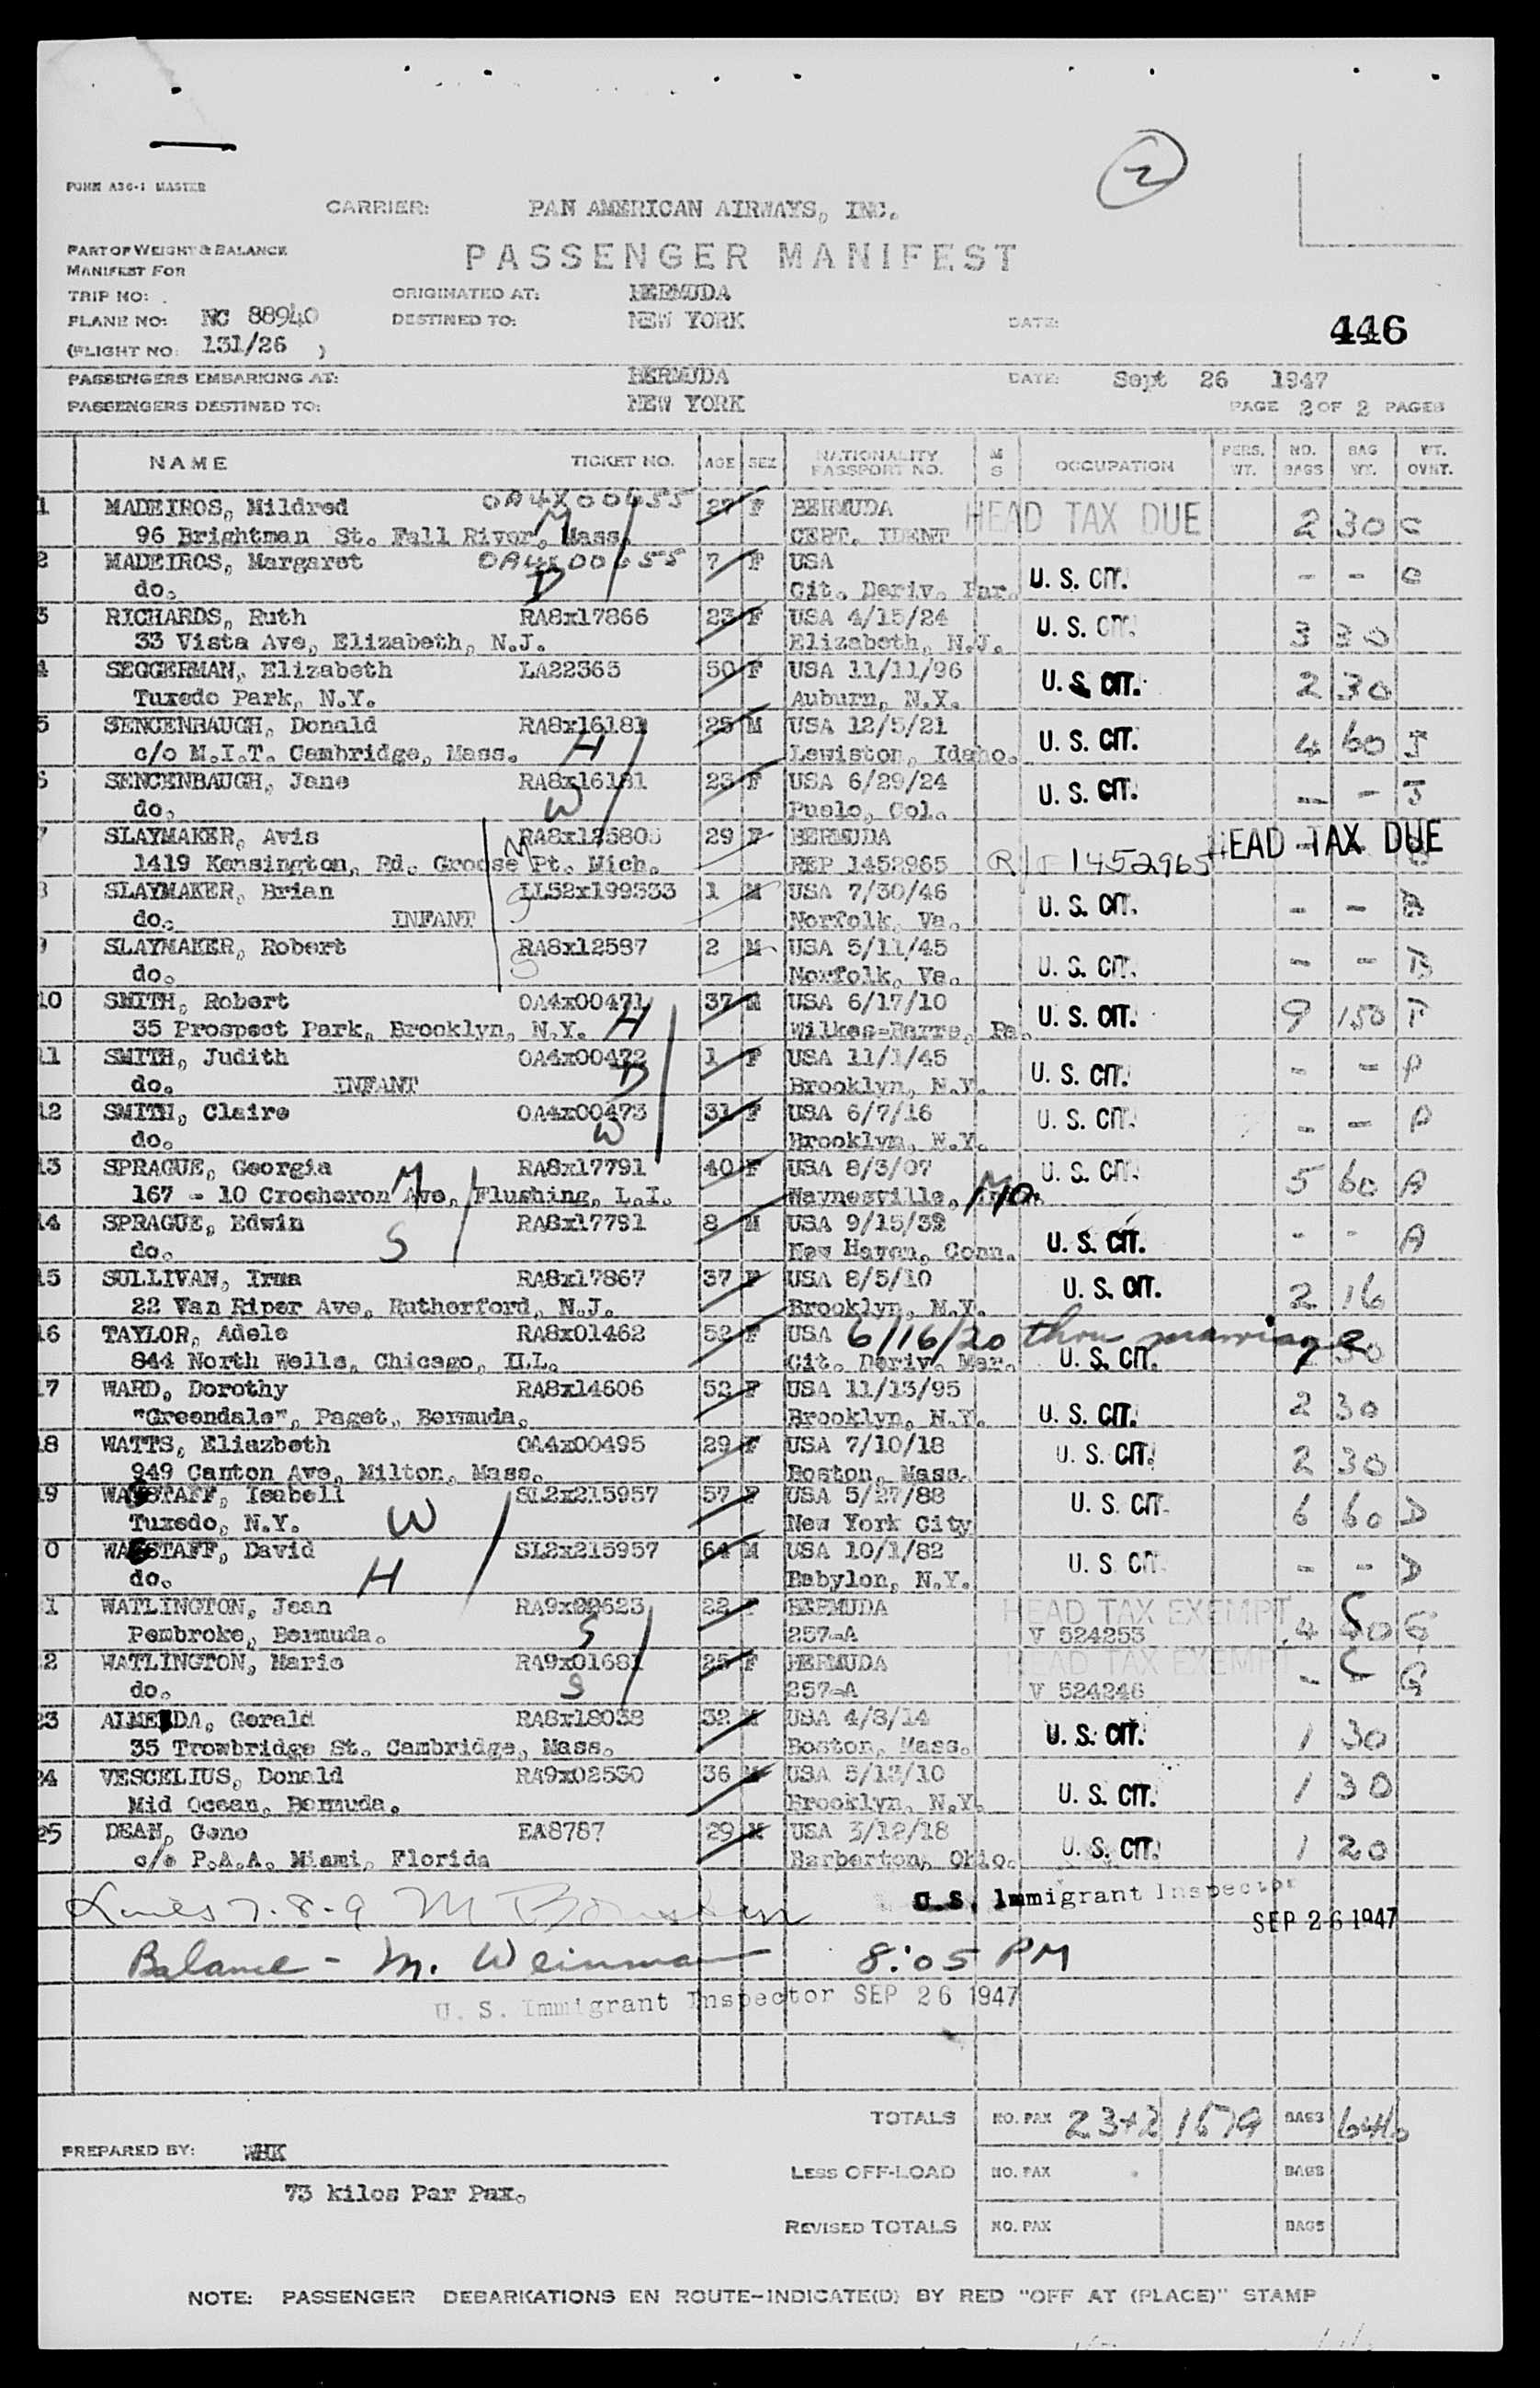 FORM A36-1 MASTER
2
CARRIER: PAN AMERICAN AIRWAYS, INC.
PART OF WEIGHT & BALANCE
MANIFEST FOR
PASSENGER MANIFEST
TRIP NO: ORIGINATED AT: BERMUDA
PLANE NO: NC 88940 DESTINED TO: NEW YORK DATE: 446
(FLIGHT NO: 131/26 )
PASSENGERS EMBARKING AT: BERMUDA DATE: Sept 26 1947
PASSENGERS DESTINED TO: NEW YORK PAGE 2 OF 2 PAGES
NAME TICKET NO. AGE SEX NATIONALITY PASSPORT NO. M S OCCUPATION PERS. WT. NO. BAGS BAG WT. WT. OVNT.
1 MADEIROS, Mildred 0A4X00455 27 F BERMUDA HEAD TAX DUE 2 30 C
96 Brightman St. Fall River, Mass. M CERT. IDENT
2 MADEIROS, Margaret 0A4X00455 7 F USA U. S. CIT. - - C
do. D Cit. Deriv. Par.
3 RICHARDS, Ruth RA8x17866 23 F USA 4/15/24 U. S. CIT. 3 30
33 Vista Ave, Elizabeth, N.J. Elizabeth, N.J.
4 SEGGERMAN, Elizabeth LA22365 50 F USA 11/11/96 U. S. CIT. 2 30
Tuxedo Park, N.Y. Auburn, N.Y.
5 SENCENBAUGH, Donald RA8x16181 25 M USA 12/5/21 U. S. CIT. 4 60 J
c/o M.I.T. Cambridge, Mass. H Lewiston, Idaho.
6 SENCENBAUGH, Jane RA8x16181 23 F USA 6/29/24 U. S. CIT. - - J
do. W Puelo, Col.
7 SLAYMAKER, Avis RA8x12580 29 F BERMUDA HEAD TAX DUE
1419 Kensington, Rd. Grosse Pt. Mich. M REP 1452965 1452965
8 SLAYMAKER, Brian LL52x199333 1 M USA 7/30/46 U. S. CIT. - - B
do. INFANT S Norfolk, Va.
9 SLAYMAKER, Robert RA8x12587 2 M USA 5/11/45 U. S. CIT. - - B
do. S Norfolk, Va.
10 SMITH, Robert OA4x00471 37 M USA 6/17/10 U. S. CIT. 9 150 F
35 Prospect Park, Brooklyn, N.Y. H Wilkes-Barre, Pa.
11 SMITH, Judith OA4x00472 1 F USA 11/1/45 U. S. CIT. - - P
do. INFANT D Brooklyn, N.Y.
12 SMITH, Claire OA4x00473 31 F USA 6/7/16 U. S. CIT. - - P
do. W Brooklyn, N.Y.
13 SPRAGUE, Georgia RA8x17791 40 F USA 8/3/07 U. S. CIT. 5 60 A
167 - 10 Crocheron Ave, Flushing, L.I. M Waynesville, Mo.
14 SPRAGUE, Edwin RA8x17791 8 M USA 9/15/38 U. S. CIT. - - A
do. S New Haven, Conn.
15 SULLIVAN, Irma RA8x17867 37 F USA 8/5/10 U. S. CIT. 2 16
22 Van Riper Ave, Rutherford, N.J. Brooklyn, N.Y.
16 TAYLOR, Adele RA8x01462 52 F USA 6/16/20 thru marriage 30
844 North Wells, Chicago, ILL. Cit. Deriv. Mar. U. S. CIT.
17 WARD, Dorothy RA8x14606 52 F USA 11/13/95 U. S. CIT. 2 30
"Greendale", Paget, Bermuda. Brooklyn, N.Y.
18 WATTS, Eliazbeth OA4x00495 29 F USA 7/10/18 U. S. CIT. 2 30
949 Canton Ave, Milton, Mass. Boston, Mass.
19 WAGSTAFF, Isabell SL2x215957 57 F USA 5/27/88 U. S. CIT. 6 60 D
Tuxedo, N.Y. W New York City
0 WAGSTAFF, David SL2x215957 64 M USA 10/1/82 U. S. CIT. - - D
do. H Babylon, N.Y.
1 WATLINGTON, Jean 22 F BERMUDA HEAD TAX EXEMPT 4 G
Pembroke, Bermuda. S 257-A V 524253
2 WATLINGTON, Marie RA9x01681 25 F BERMUDA HEAD TAX EXEMPT - G
do. S 257-A V 524246
23 ALMEIDA, Gerald RA8x18038 32 M USA 4/8/14 U. S. CIT. 1 30
35 Trowbridge St. Cambridge, Mass. Boston, Mass.
24 VESCELIUS, Donald RA9x02530 36 M USA 5/13/10 U. S. CIT. 1 30
Mid Ocean, Bermuda. Brooklyn, N.Y.
25 DEAN, Gene EA8787 29 M USA 3/12/18 U. S. CIT. 1 20
c/o P.A.A. Miami, Florida Barberton, Ohio.
Lines 7-8-9 M U.S. Immigrant Inspector
SEP 26 1947
Balance - M. Weinman 8:05 PM
U. S. Immigrant Inspector SEP 26 1947
TOTALS NO. PAX 23+2 1679 BAGS 646
PREPARED BY: WHK
LESS OFF-LOAD NO. PAX BAGS
73 kilos Par Pax.
REVISED TOTALS NO. PAX BAGS
NOTE: PASSENGER DEBARKATIONS EN ROUTE-INDICATE(D) BY RED "OFF AT (PLACE)" STAMP